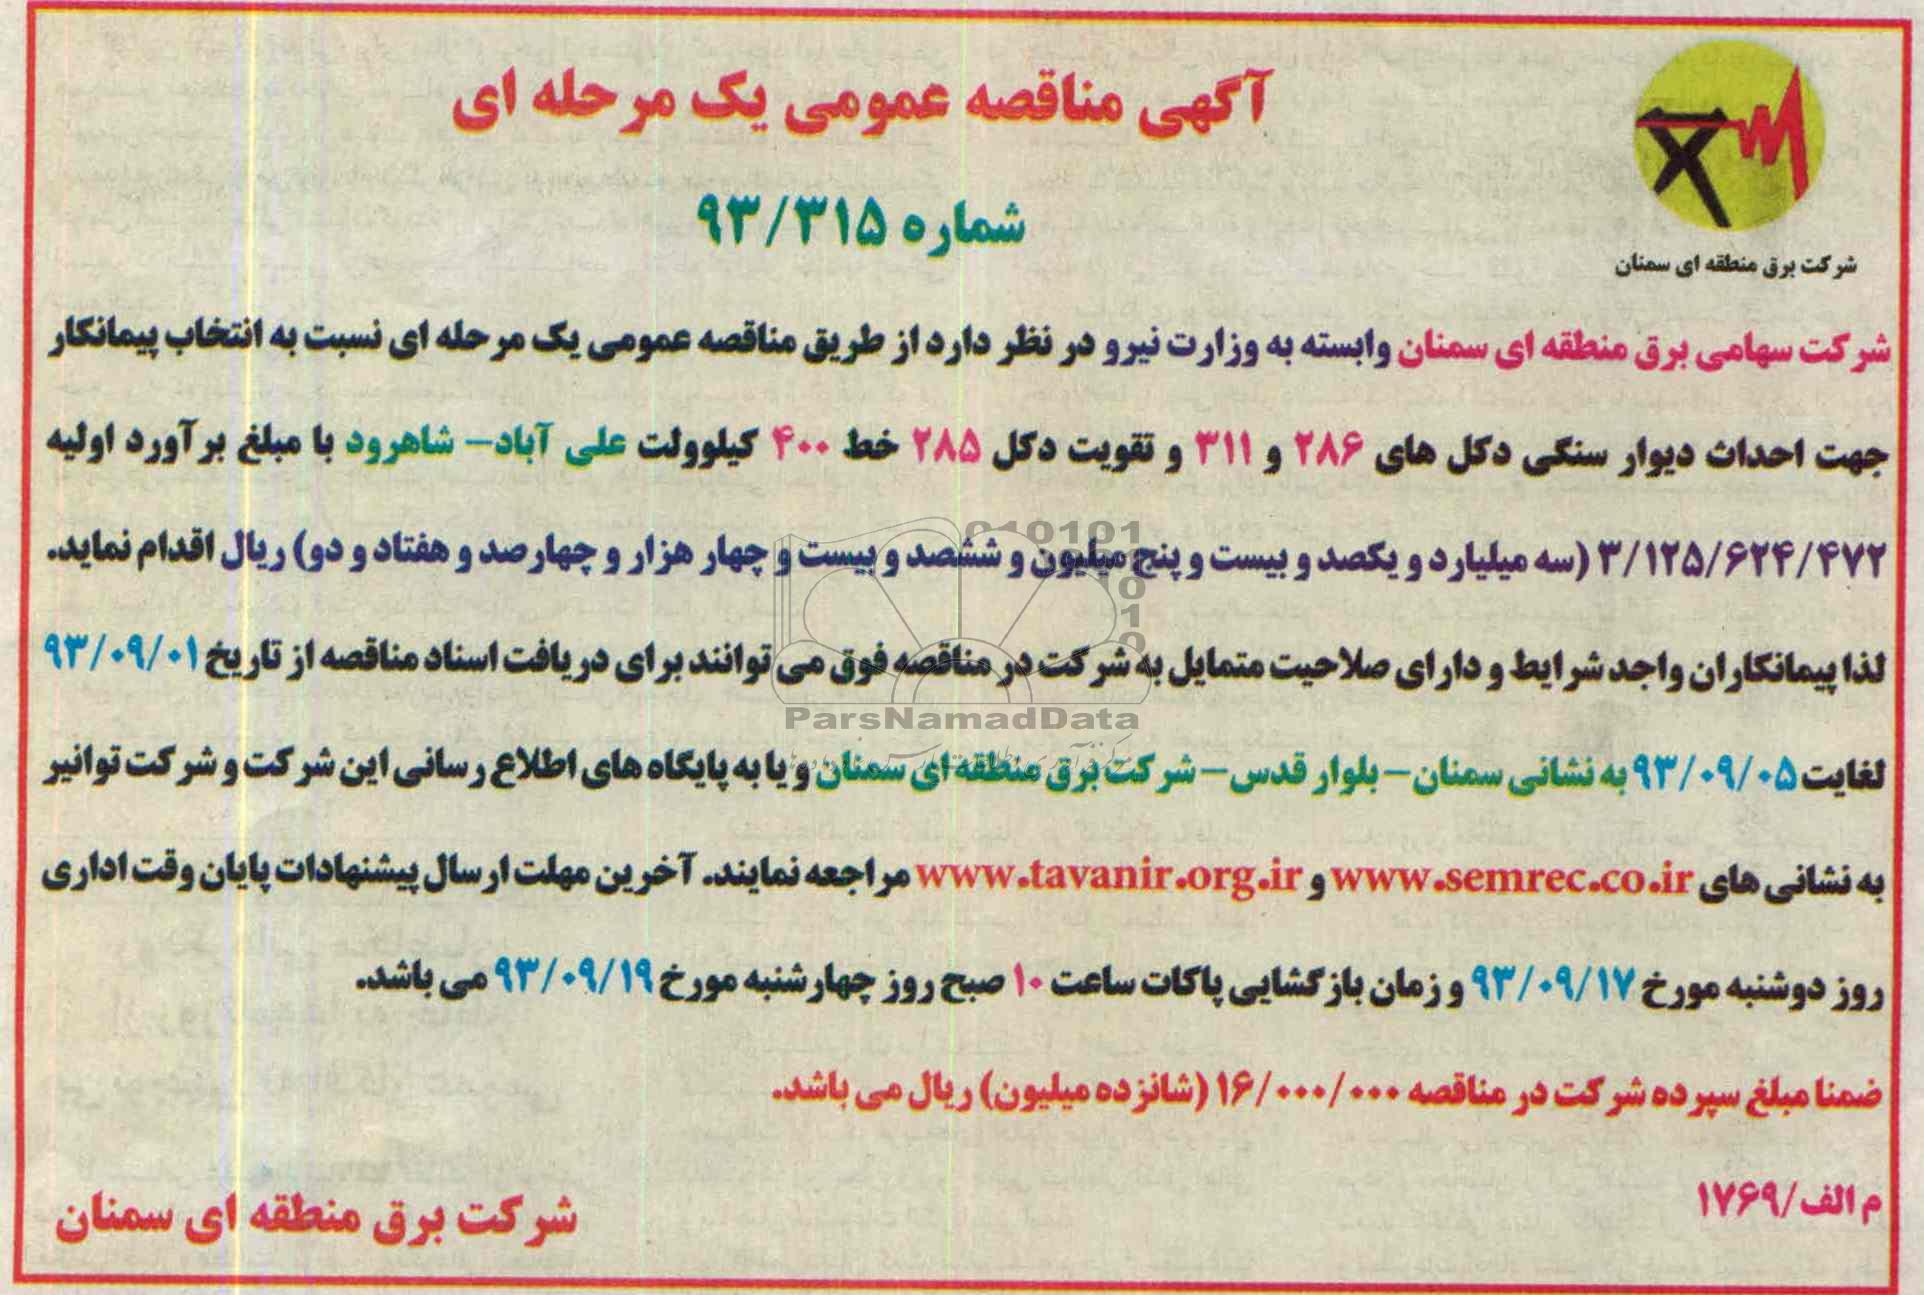 آگهی مناقصه عمومی یک مرحله ای
شماره ۹۳/۳۱۵
شرکت برق منطقه ای سمنان
شرکت سهامی برق منطقه ای سمنان وابسته به وزارت نیرو در نظر دارد از طریق مناقصه عمومی یک مرحله ای نسبت به انتخاب پیمانکار
جهت احداث دیوار سنگی دکل های ۲۸۶ و ۳۱۱ و تقویت دکل ۲۸۵ خط ۴۰۰ کیلوولت علی آباد- شاهرود با مبلغ برآورد اولیه
۳/۱۲۵/۶۲۴/۴۷۲ (سه میلیارد و یکصد و بیست و پنج میلیون و ششصد و بیست و چهار هزار و چهارصد و هفتاد و دو) ریال اقدام نماید.
لذا پیمانکاران واجد شرایط و دارای صلاحیت متمایل به شرکت در مناقصه فوق می توانند برای دریافت اسناد مناقصه از تاریخ ۹۳/۰۹/۰۱
لغایت ۹۳/۰۹/۰۵ به نشانی سمنان- بلوار قدس- شرکت برق منطقه ای سمنان و یا به پایگاه های اطلاع رسانی این شرکت و شرکت توانیر
به نشانی های www.semrec.co.ir و www.tavanir.org.ir مراجعه نمایند. آخرین مهلت ارسال پیشنهادات پایان وقت اداری
روز دوشنبه مورخ ۹۳/۰۹/۱۷ و زمان بازگشایی پاکات ساعت ۱۰ صبح روز چهارشنبه مورخ ۹۳/۰۹/۱۹ می باشد.
ضمنا مبلغ سپرده شرکت در مناقصه ۱۶/۰۰۰/۰۰۰ (شانزده میلیون) ریال می باشد.
م الف/۱۷۶۹
شرکت برق منطقه ای سمنان
010101
0
1
0
ParsNamadData